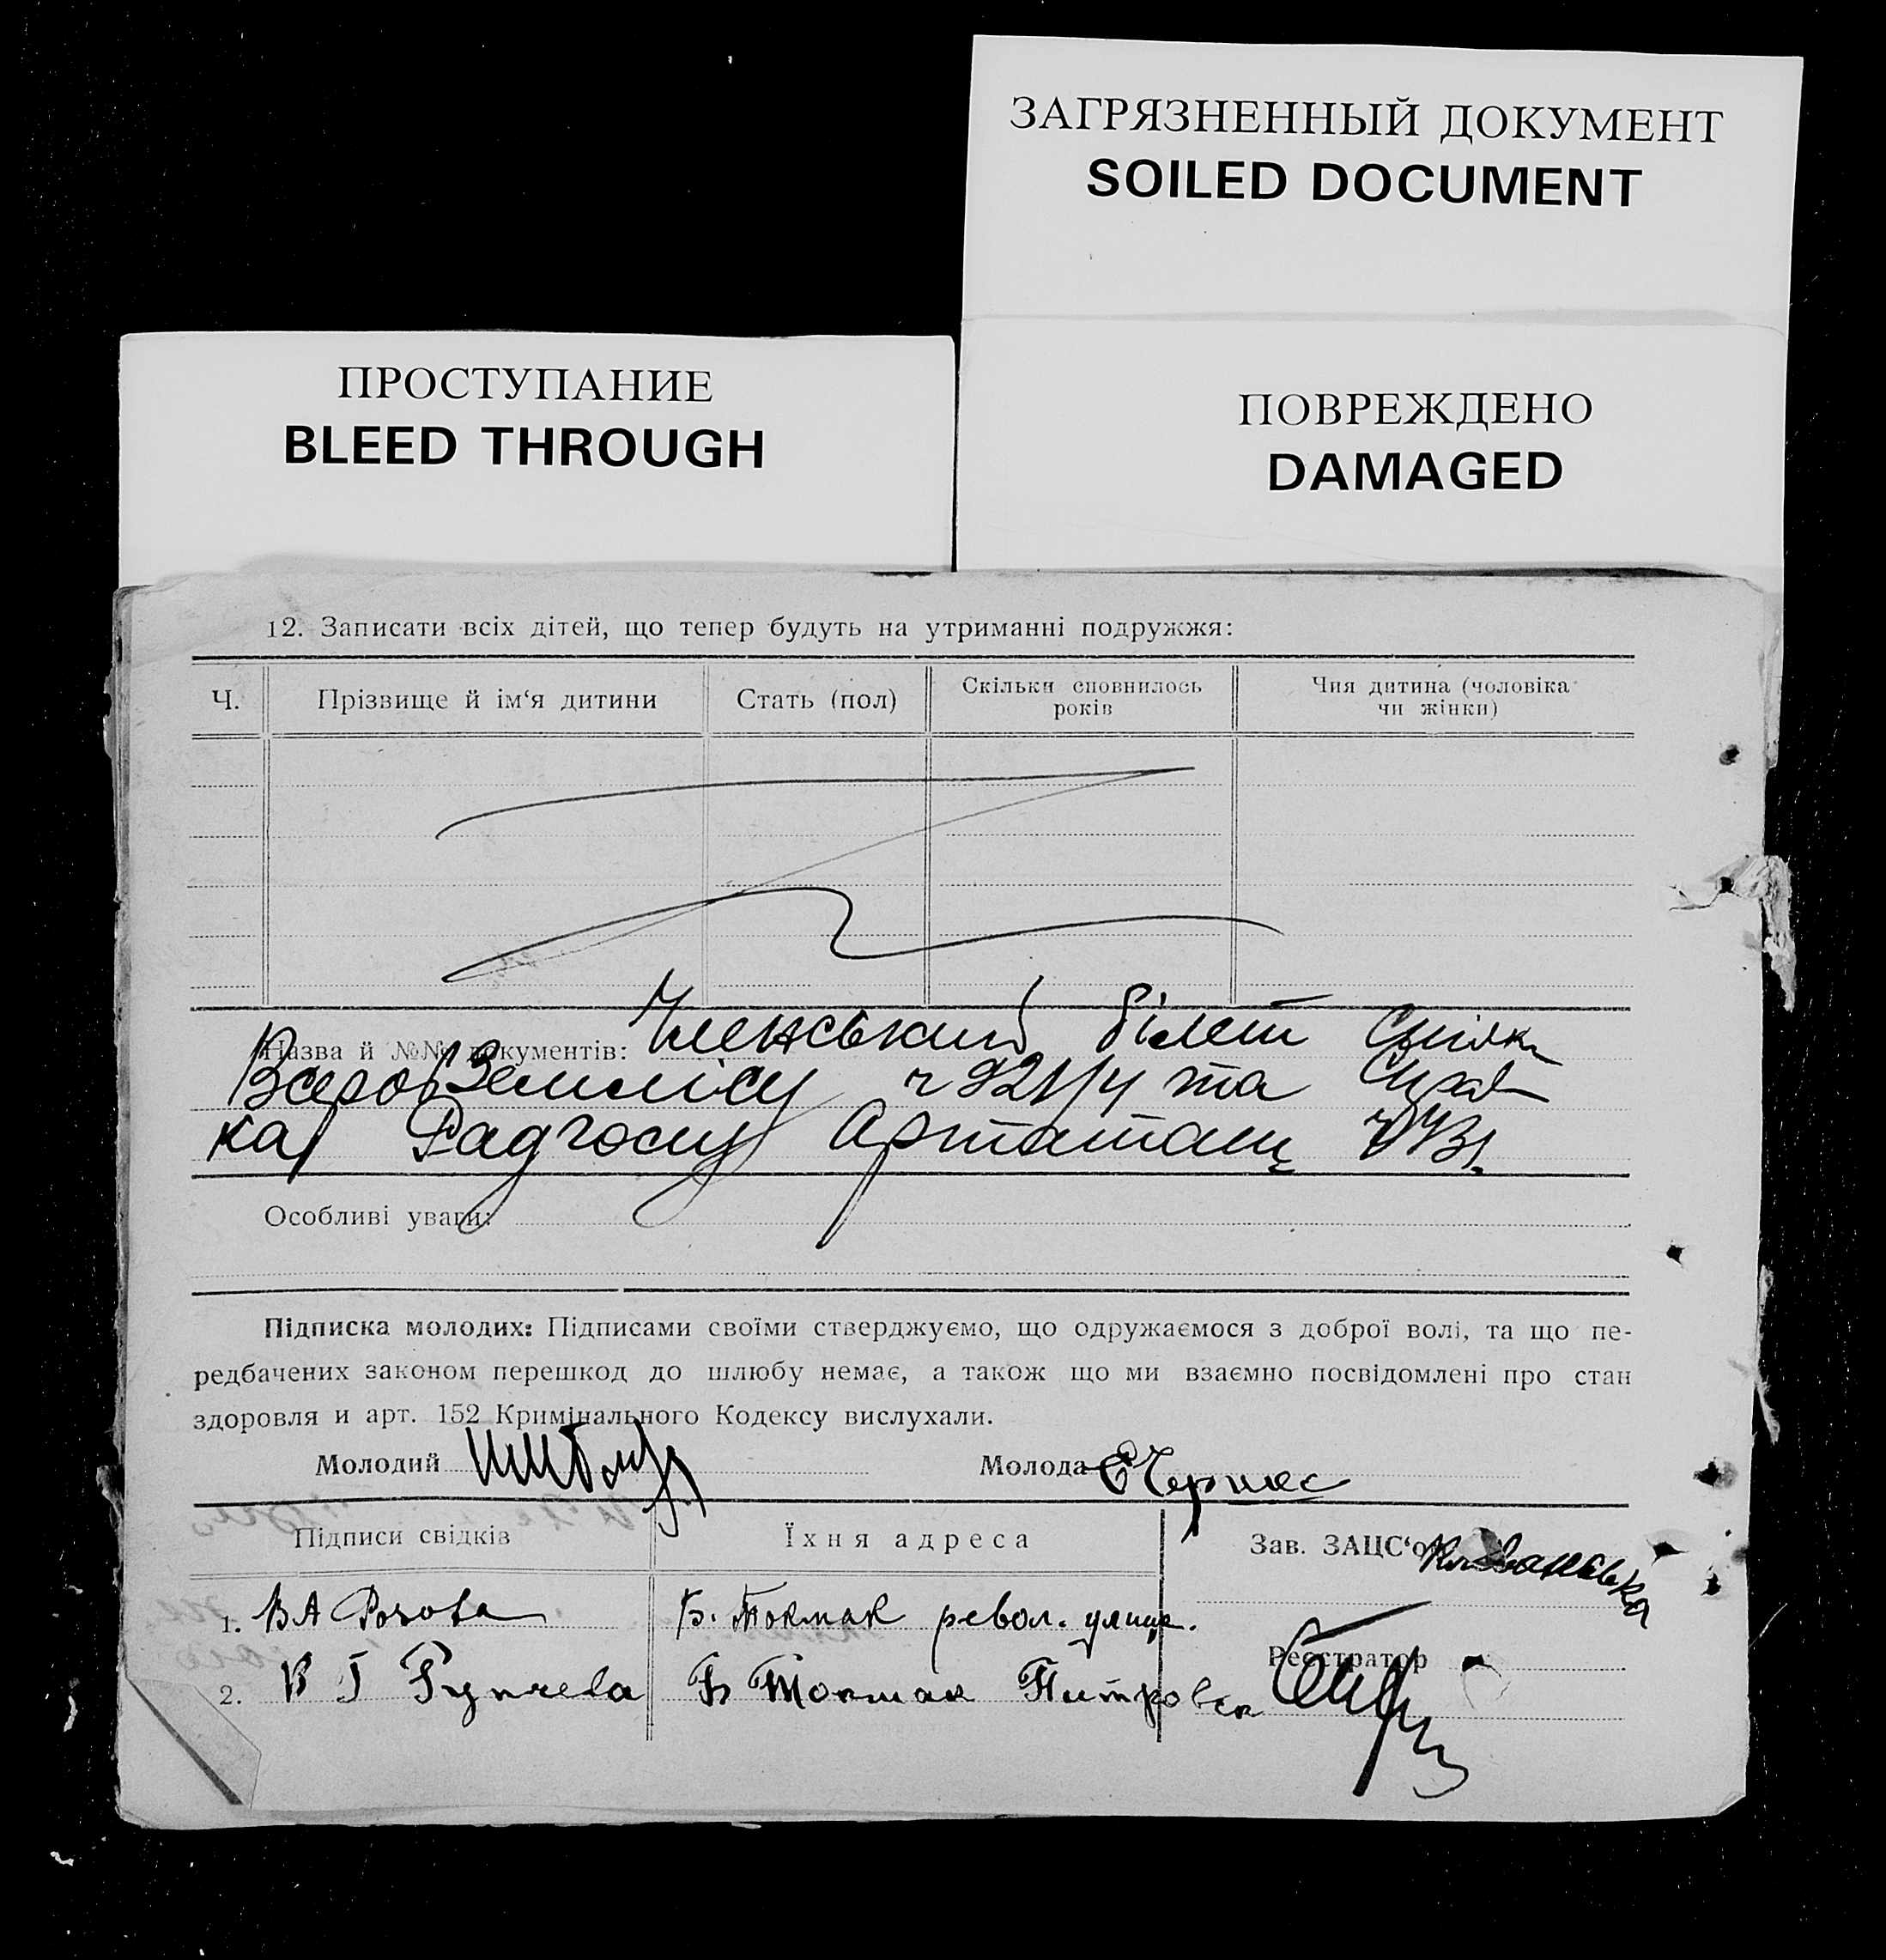 ЗАГРЯЗНЕННЫЙ ДОКУМЕНТ
SOILED DOCUMENT
ПРОСТУПАНИЕ
BLEED THROUGH
ПОВРЕЖДЕНО
DAMAGED
12. Записати всіх дітей, що тепер будуть на утриманні подружжя:
Ч.
Прізвище й ім‘я дитини
Стать (пол)
Скільки сповнилось
років
Чия дитина (чоловіка
чи жінки)
Назва й №№ документів: Членський білет
та
ка Радгоспу
Особливі уваги:
Підписка молодих: Підписами своїми стверджуємо, що одружаємося з доброї волі, та що пе-
редбачених законом перешкод до шлюбу немає, а також що ми взаємно посвідомлені про стан
здоровля и арт. 152 Кримінального Кодексу вислухали.
Молодий
Молода
Підписи свідків
Їхня адреса
Зав. ЗАЦС‘о
1. В А Розова
Б. Токмак револ. улица.
Реєстратор
2. В Г
Б Токмак